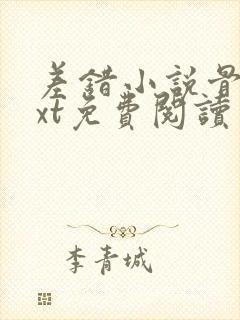 差錯小說最
xt免費閱讀
李青城